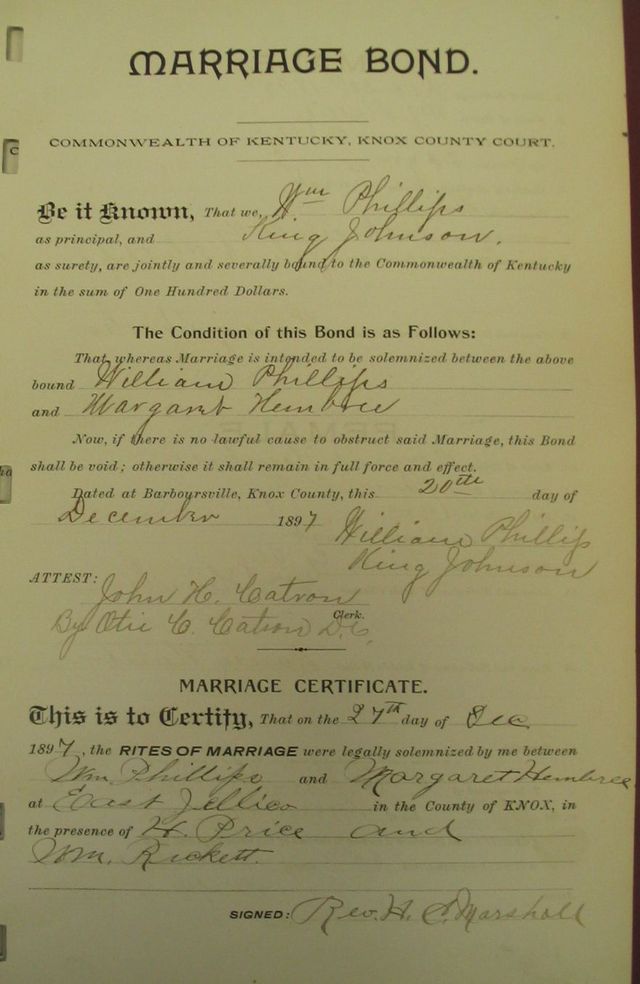 MARRIAGE BOND.
COMMONWEALTH OF KENTUCKY, KNOX COUNTY COURT.
Be it Known, That we, Wm Phillips
as principal, and King Johnson.
as surety, are jointly and severally bound to the Commonwealth of Kentucky
in the sum of One Hundred Dollars.
The Condition of this Bond is as Follows:
That whereas Marriage is intended to be solemnized between the above
bound William Phillips
and Margaret Hembree
Now, if there is no lawful cause to obstruct said Marriage, this Bond
shall be void; otherwise it shall remain in full force and effect.
Dated at Barboursville, Knox County, this 20th day of
December 1897
William Phillips
King Johnson
ATTEST: John H. Catron
Clerk.
By Otie C. Catron D.C.
MARRIAGE CERTIFICATE.
This is to Certify, That on the 27th day of Dec
1897, the RITES OF MARRIAGE were legally solemnized by me between
Wm. Phillips and Margaret Hembree
at East Jellico in the County of KNOX, in
the presence of H. Price and
Wm. Rickett.
SIGNED: Rev. H. S. Marshall